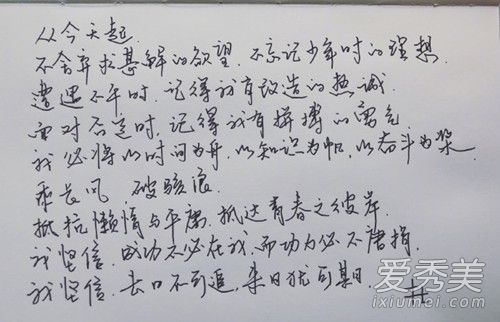 从今天起
不舍弃求甚解的欲望,不忘记少年时的理想.
遭遇不平时,记得我有改造的热诚.
面对否定时,记得我有拼搏的勇气.
我必将以时间为舟,以知识为帆,以奋斗为桨.
乘长风 破骇浪.
抵抗懒惰与平庸.抵达青春之彼岸.
我坚信 成功不必在我,而功力必不唐捐.
我坚信.去日不可追,来日犹可期.
爱秀美
ixiumei.com